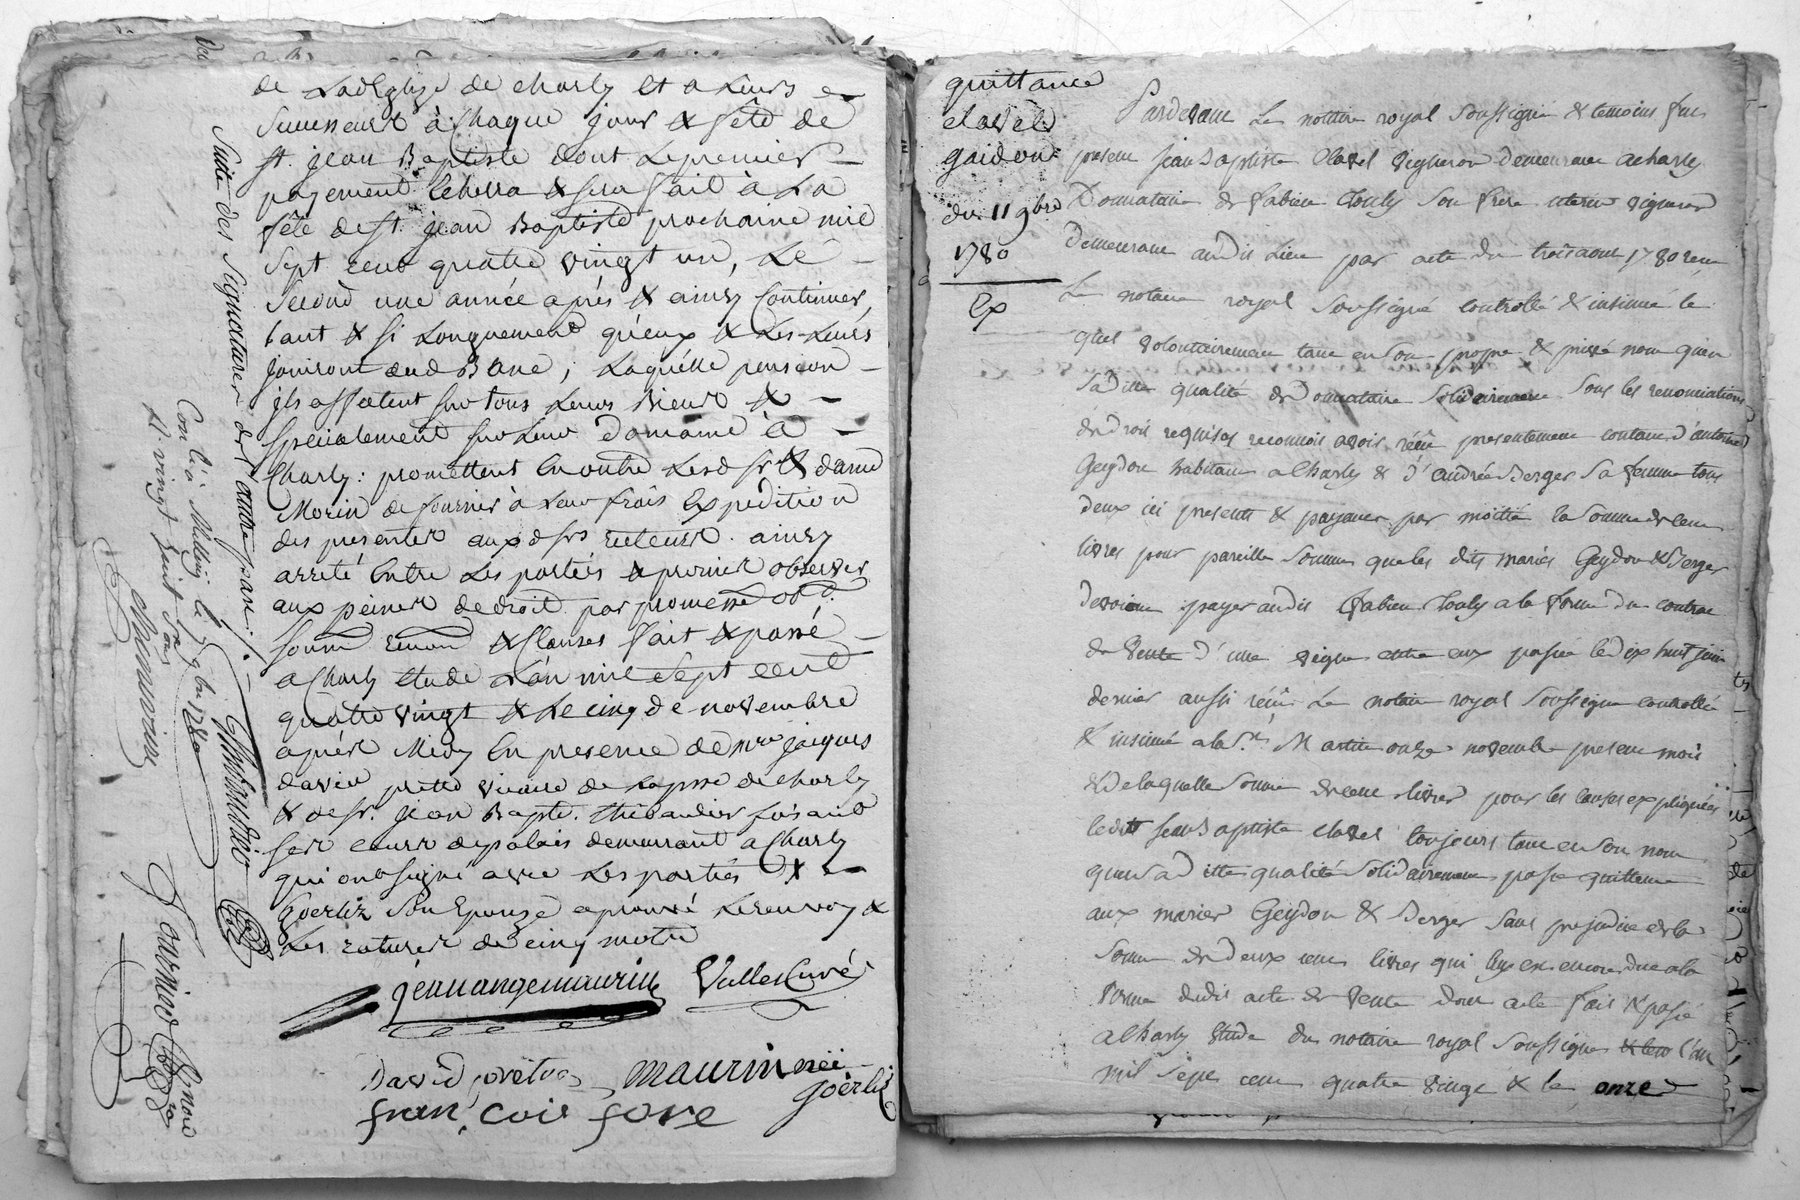 de Ladeglize de charly Et a Leurs
Successeurs à Chaque jour & fête de
st. jean Baptiste dont Lepremier
payement Echerra & sera fait à La
fête de st. jean Baptiste prochaine mil
Sept cent quatre vingt un, Le
Second une année aprés & ainsy Continuer
tant & si Longuement qu'eux & Les Leurs
jouiront dud Banc; Laquélle pension
ils affectent sur tous Leurs Biens &
spécialement sur Leur Domaine à
Charly: promettent En outre Lesd sr & dame
Morin de fournir à Leur frais Expedition
des presentes auxd srs recteurs. ainsy
arreté Entre Les partiés & promis observer
aux peines de droit par promesse obb.
soum renon & Clauses fait & passé
a Charly Etude L'an mil sept cent
quatre vingt & Le cinq de novembre
aprés Midy En presence de mre jacques
david prettre vicaire de Lapsse de charly
& de sr. jean Bapte. thibaudier faisant
ses cours depalais demeurant a Charly
qui ont signé avec Les partiés &
Goerliz son Epouze aprouvé Lerenvoy &
Les ratures de cinq mots
jean ange maurin Vallet Curé
David prêtre maurin neè
Goèrliz
francois fore
Suite des Signatures des autre part
Thibaudier
Con lé à Millery le 9bre 1780
R. vingt huit sous
quittance
clavel
gaidon
du 11 9bre
1780
Ex
Pardevant Le nottaire royal Soussigné & temoins fut
present jean Baptiste Clavel vigneron demeurant a charly
Donnataire de fabien Couly Son frere uterin vigneron
demeurant audit Lieu par acte du trois aout 1780 recu
Le notaire royal Soussigné controllé & insinué le
quel volontairement tant en Son propre & privé nom qu'en
Sa ditte qualité de Donnataire Solidairement Sous les renonciations
de droit requises reconnoit avoir réçu presentement contant d'antoine
Geydon habitant a Charly & d'andrée Berger Sa femme tous
deux ici presents & payants par moitié la Somme de cent
livres pour pareille Somme que les dits mariés Geydon & Berger
devoient payer audit fabien Couly a la forme du contrat
de vente d'une vigne entre eux passé le dix huit juin
dernier aussi réçu Le notaire royal Soussigné controllé
& insinué a la St. Martin onze novembre present mois
& de laquelle Somme de cent livres pour les causes expliquées
ledit jean Baptiste clavel toujours tant en Son nom
qu'en Sa ditte qualité Solidairement passe quittance
aux mariés Geydon & Berger Sans prejudice de la
Somme de deux cens livres qui luy est encore due a la
forme dudit acte de vente dont acte fait & passé
a Charly Etude du notaire royal Soussigné l'an
mil sept cent quatre vingt & le onze